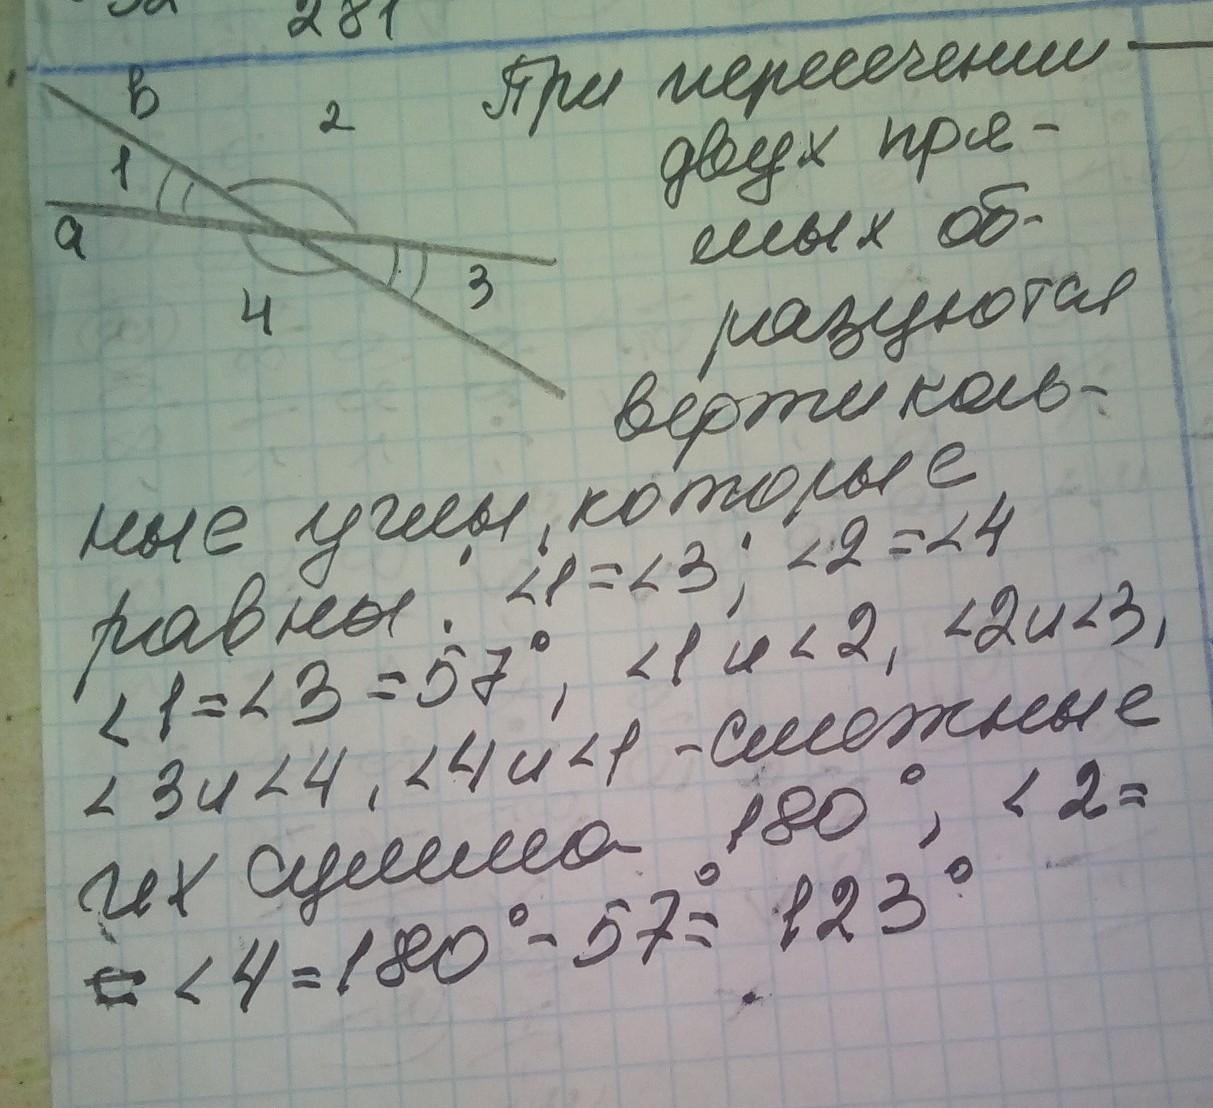 281
в
2
1
а
3
4
При пересечении
двух пря-
мых об-
разуются
вертикаль-
ные углы, которые
равны: <1=<3; <2=<4
<1=<3=57°, <1 и <2, <2 и <3,
<3 и <4, <4 и <1 - смежные
их сумма 180°, <2=
= <4=180°-57°= 123°